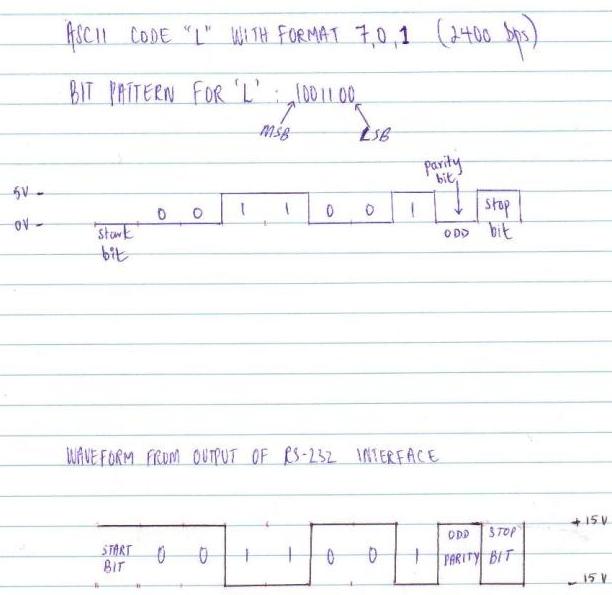 ASCII CODE "L" WITH FORMAT 7,O,1 (2400 bps)
BIT PATTERN FOR 'L' : 1001100
MSB LSB
parity
bit
5V -
0 0 1 1 0 0 1 Stop
0V -
start ODD bit
bit
WAVEFORM FROM OUTPUT OF RS-232 INTERFACE
+15V
ODD STOP
START 0 0 1 1 0 0 1 PARITY BIT
BIT
-15V